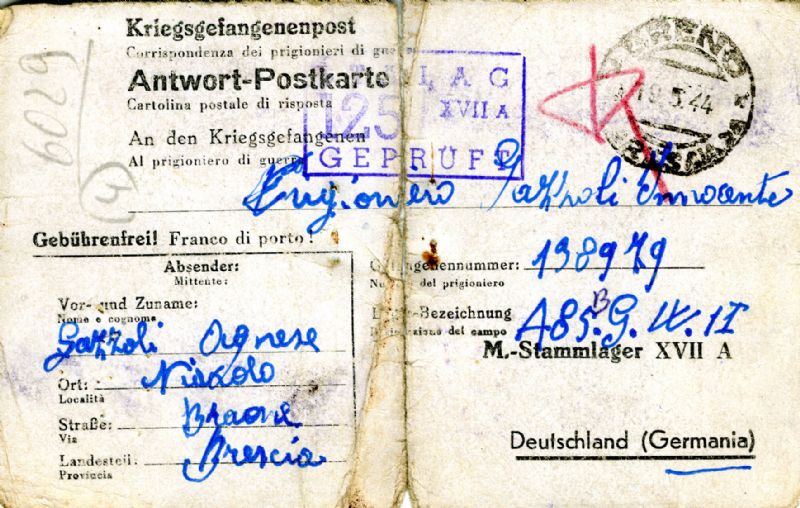 Kriegsgefangenenpost
Corrispondenza dei prigionieri di guerra
Antwort-Postkarte
Cartolina postale di risposta
An den Kriegsgefangenen
Al prigioniero di guerra
STALAG
XVII A
125
GEPRÜFT
BRENO
19.5.44
BRESCIA
6029
Prigioniero Gazzoli Innocente
Gebührenfrei! Franco di porto!
Absender:
Mittente:
Vor- und Zuname:
Nome e cognome
Gazzoli Agnese
Ort:
Località
Straße:
Via
Braone
Landesteil:
Provincia
Brescia
Gefangenennummer: 138979
del prigioniero
-Bezeichnung
del campo
B
A85. G. W. II
M.-Stammlager XVII A
Deutschland (Germania)